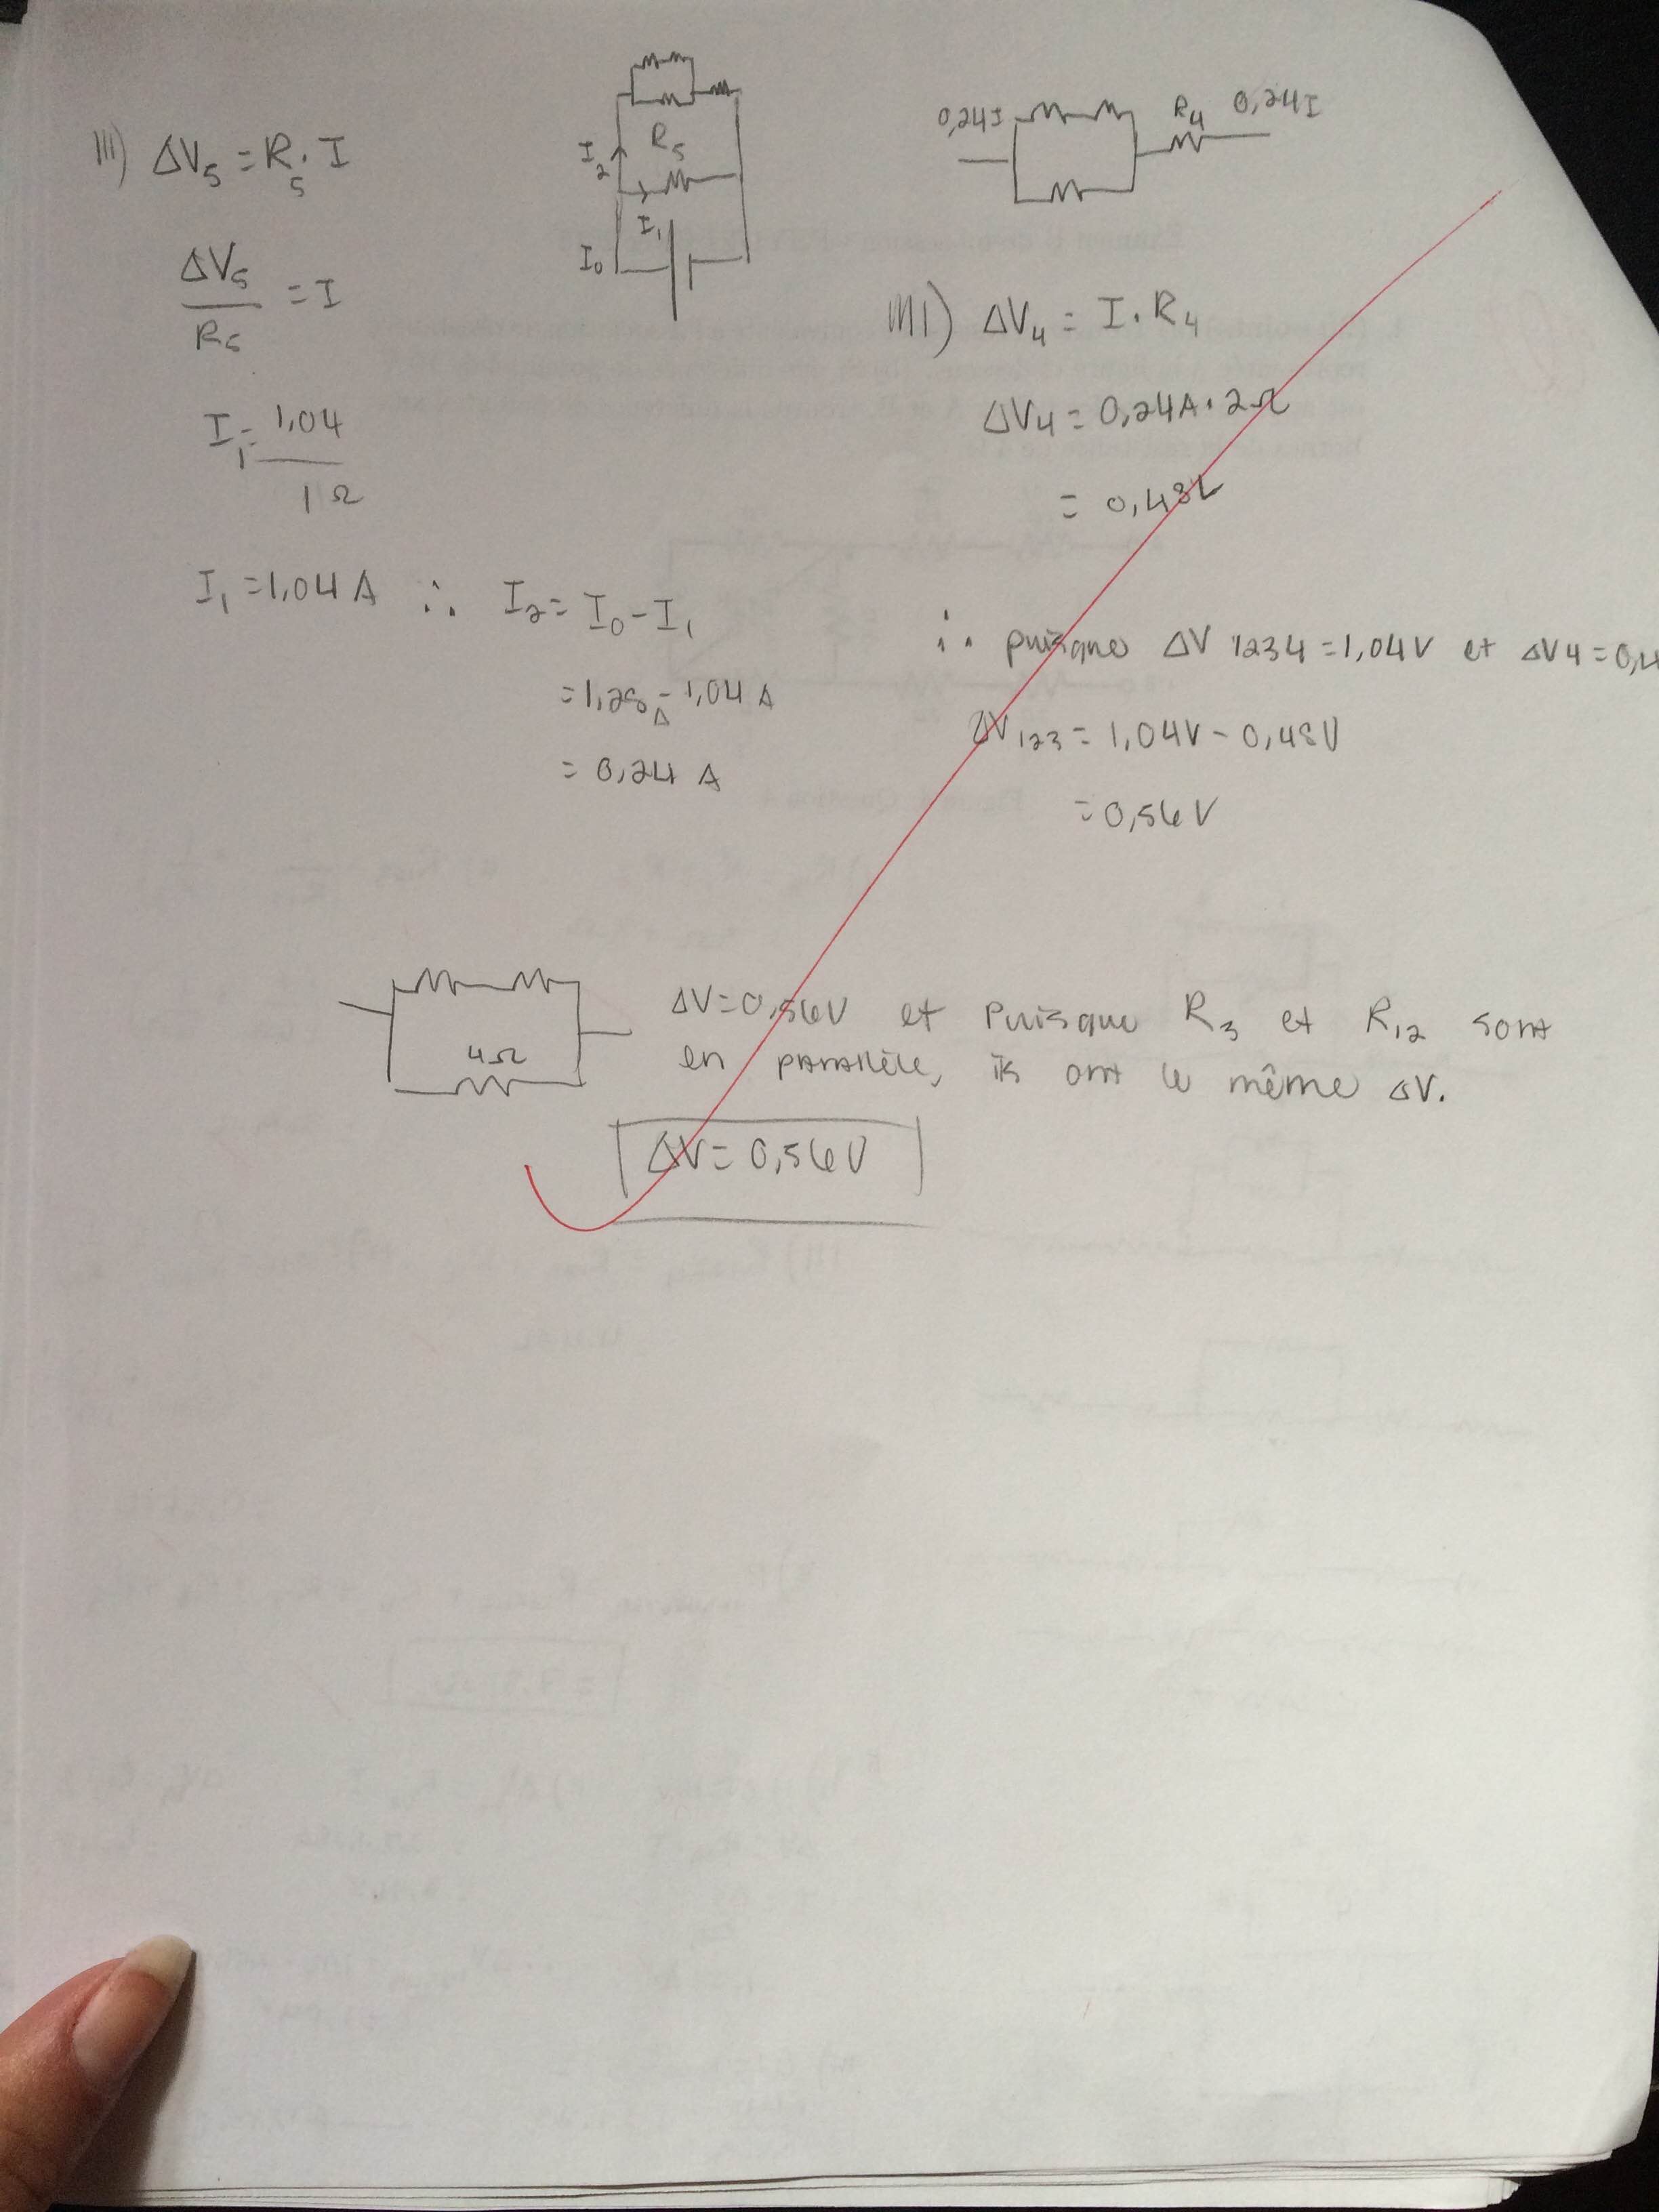 III) ΔV₅ = R₅ · I
ΔV₅
R₅
= I
I₁ = 1,04
1 Ω
I₁ = 1,04 A ∴ I₂ = I₀ - I₁
= 1,28 A - 1,04 A
= 0,24 A
R₅
I₂
I₁
I₀
0,24I
R₄ 0,24I
IIII) ΔV₄ = I · R₄
ΔV₄ = 0,24A · 2Ω
= 0,48V
∴ puisque ΔV 1234 = 1,04V et ΔV4 = 0,4
ΔV₁₂₃ = 1,04V - 0,48V
= 0,56V
4Ω
ΔV = 0,56V et Puisque R₃ et R₁₂ sont
en parallèle, ils ont le même ΔV.
ΔV = 0,56V